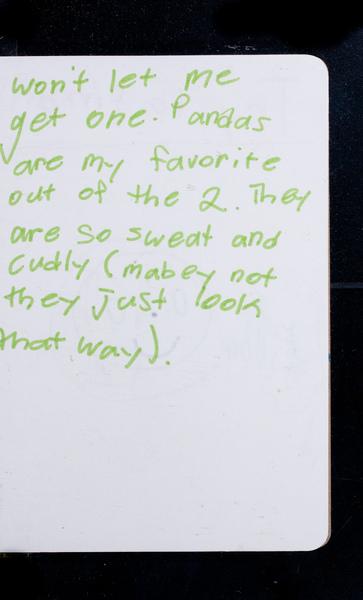 won't let me
get one. Pandas
are my favorite
out of the 2. They
are so sweat and
cudly (mabey not
they just look
that way).